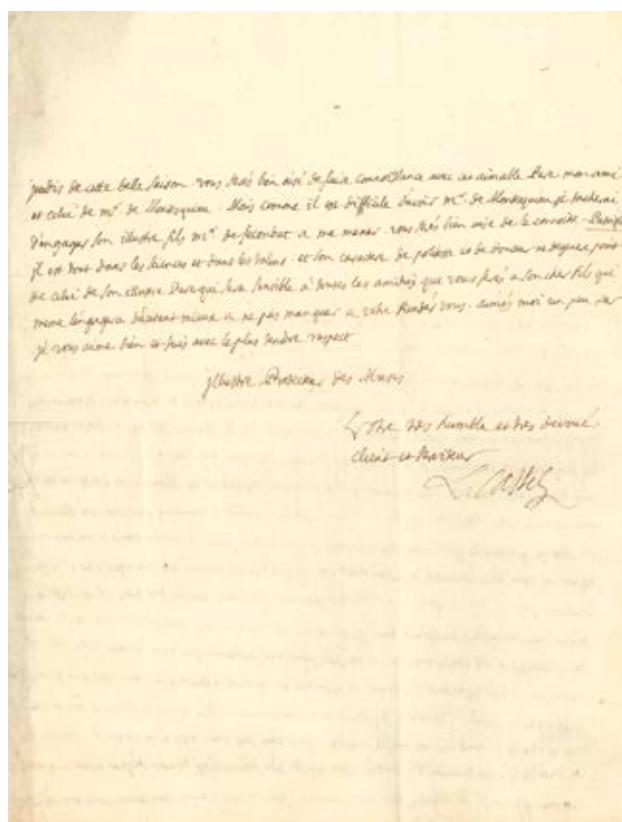 jeudis de cette belle saison. vous serés bien aisé de faire connoissance avec cet aimable Pere mon ami
et celui de mr. de Montesquieu. Mais comme il est difficile d'avoir mr. de Montesquieu je tacherai
d'engager son illustre fils mr. de secondat a me mener. vous serés bien aise de le connoitre.
il est tout dans les sciences et dans les talens. et son caractere de politesse et de douceur ne degenere point
de celui de son illustre Pere qui sera sensible à toutes les amitiés que vous ferés a son cher fils qui
meme l'engagera d'autant mieux a ne pas manquer a votre Rendes vous. aimés moi un peu, car
je vous aime bien et suis avec le plus tendre respect
illustre Protecteur des Muses
Votre tres humble et tres devoué
client et serviteur
L. Castel j